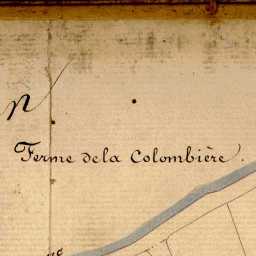 Ferme de la Colombière.